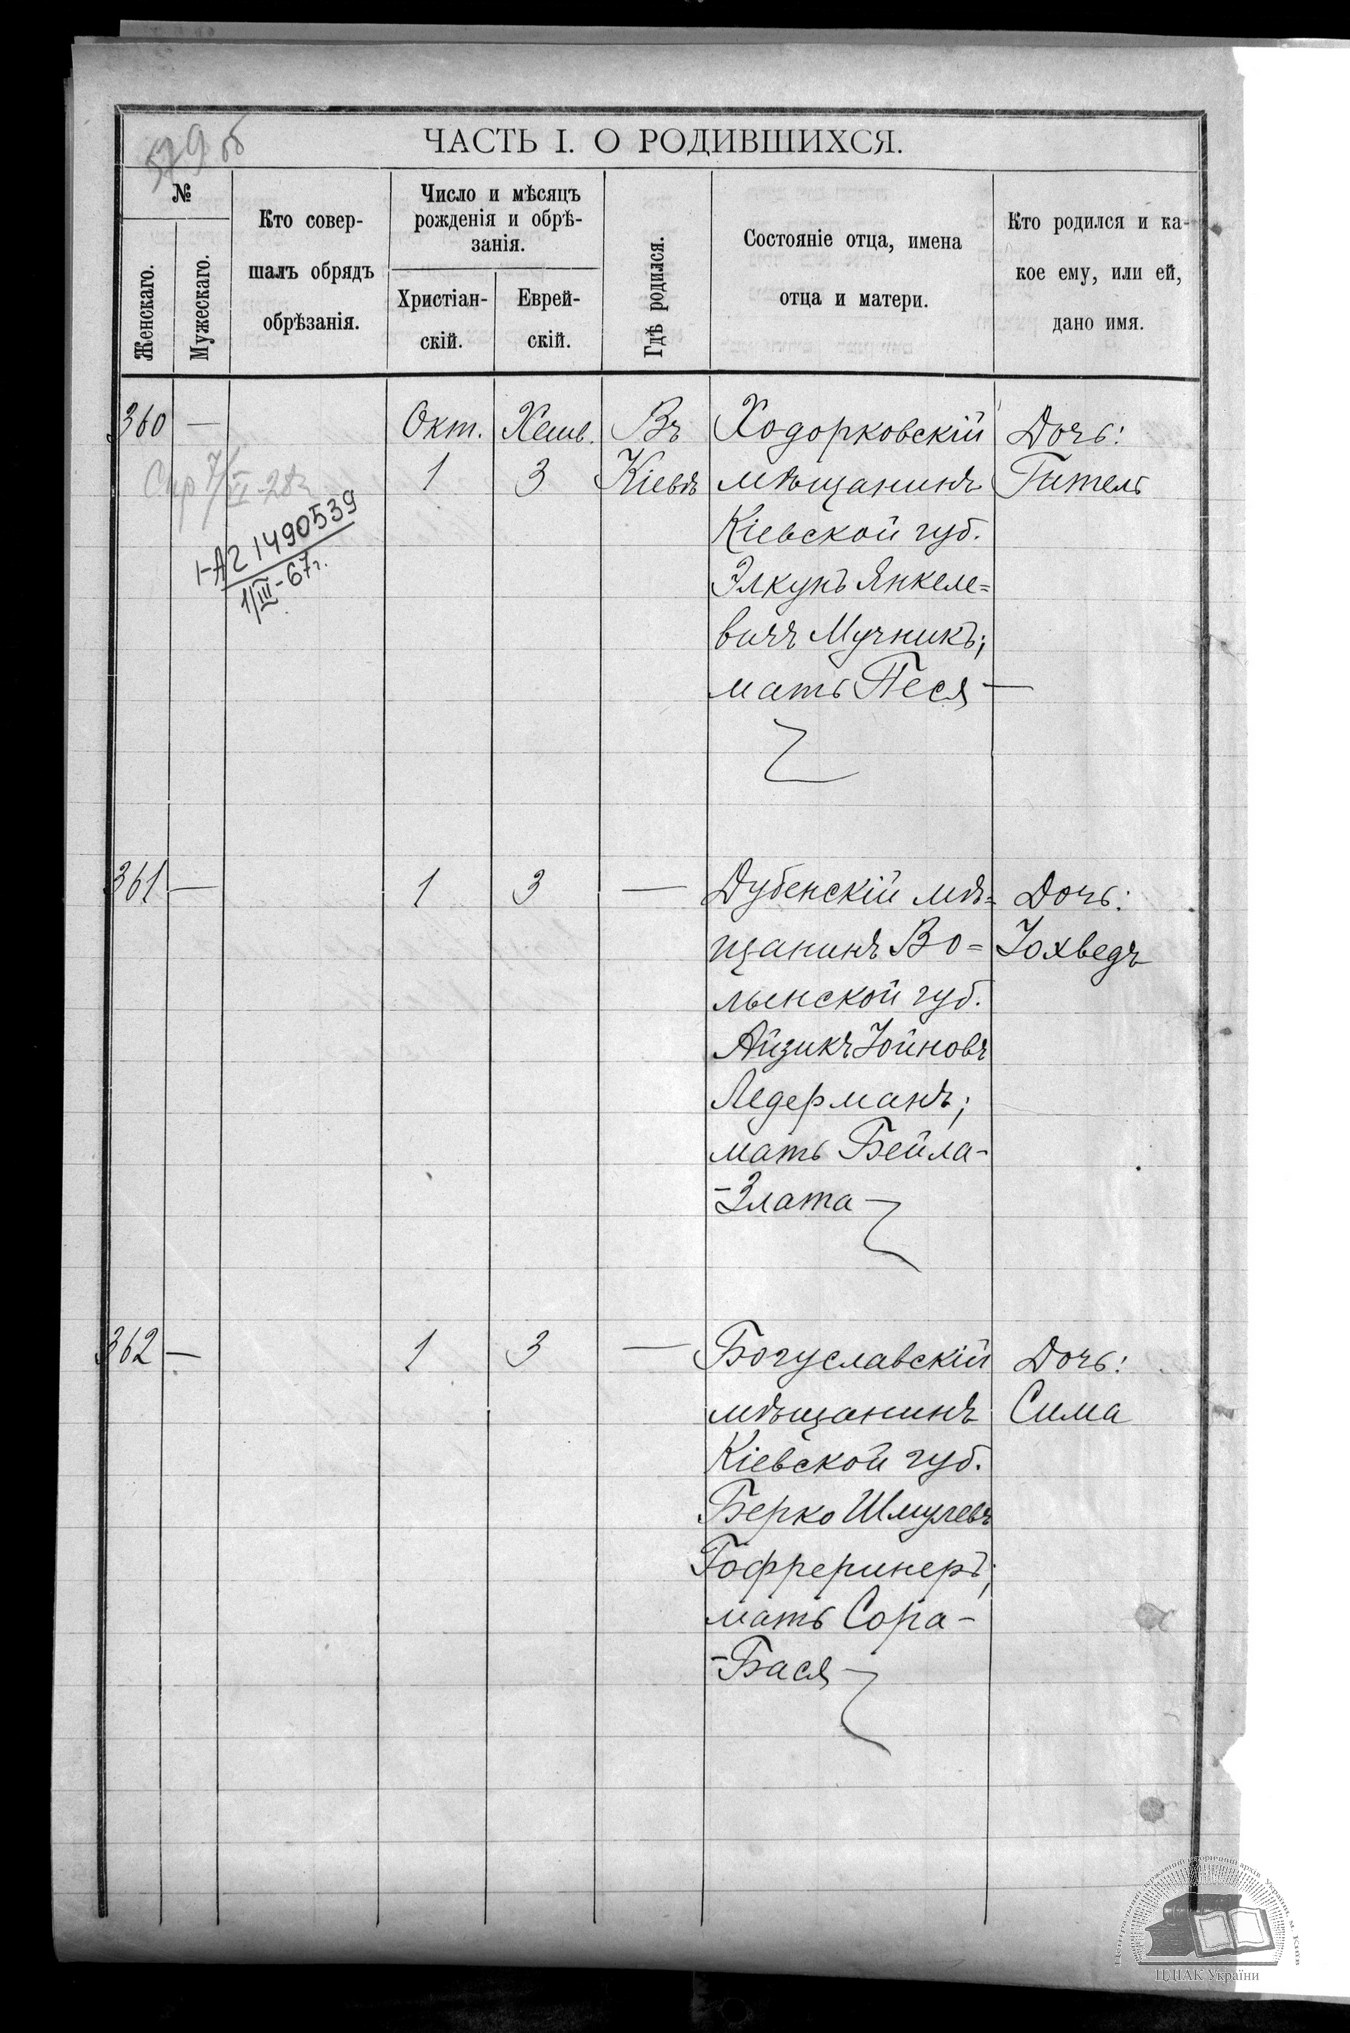 579 об
ЧАСТЬ I. О РОДИВШИХСЯ.
№
Женскаго.
Мужескаго.
Кто совер-
шалъ обрядъ
обрѣзанія.
Число и мѣсяцъ
рожденія и обрѣ-
занія.
Христіан-
скій.
Еврей-
скій.
Гдѣ родился.
Состояніе отца, имена
отца и матери.
Кто родился и ка-
кое ему, или ей,
дано имя.
360 —
Окт.
1
Хешв.
3
Въ
Кіевѣ
Ходорковскій
мѣщанинъ
Кіевской губ.
Элкунъ Янкеле=
вичъ Мучникъ;
мать Песя —
Дочь:
Гитель
I-А2 1490539
1/III-67г.
361 —
1
3
—
Дубенскій мѣ=
щанинъ Во=
лынской губ.
Айзикъ Іойновъ
Ледерманъ;
мать Бейла-
-Злата
Дочь:
Іохведъ
362 —
1
3
—
Богуславскій
мѣщанинъ
Кіевской губ.
Берко Шмулевъ
Гофреринеръ;
мать Сора-
-Бася
Дочь:
Сима
Центральний державний історичний архів України, м. Київ
ЦДІАК України